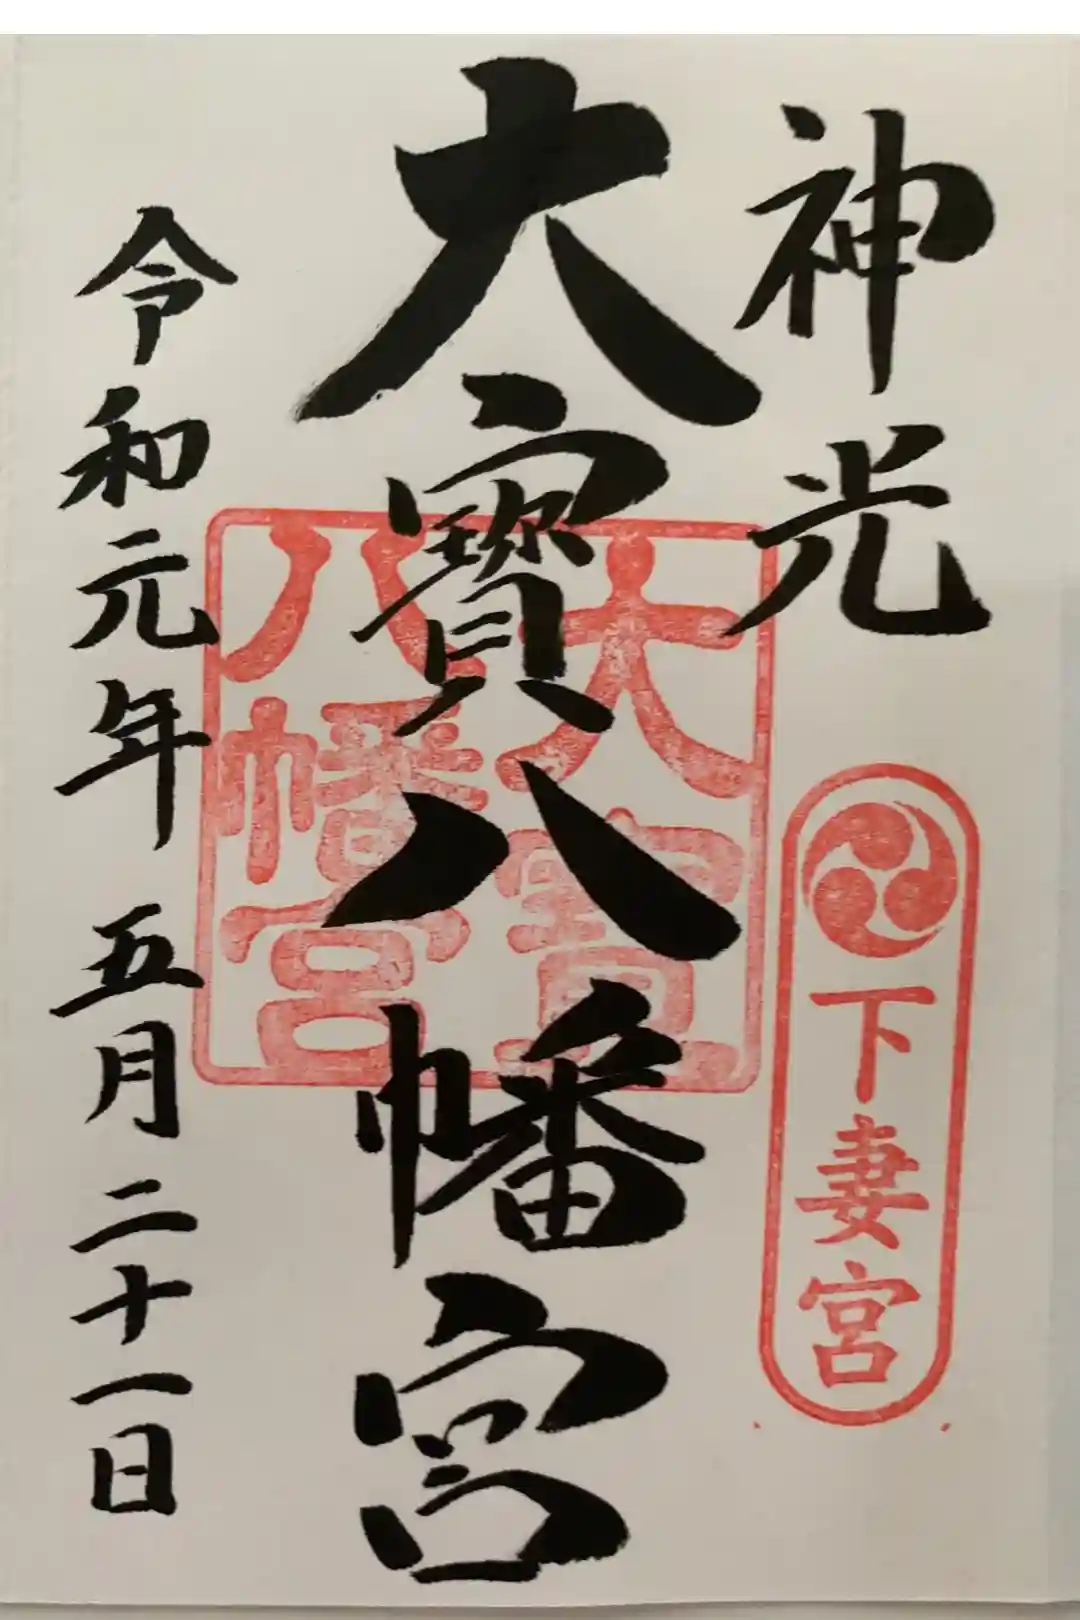 神光
下妻宮
大寳八幡宮
大宝
八幡宮
令和元年 五月二十一日